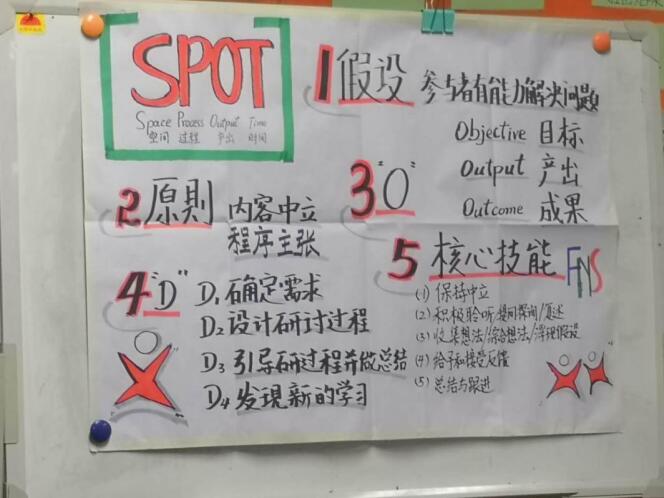 SPOT
Space Process Output Time
空间 过程 产出 时间
1 假设 参与者有能力解决问题
2 原则 内容中立
程序主张
3 "O"
Objective 目标
Output 产出
Outcome 成果
4 "D" D1 确定需求
D2 设计研讨过程
D3 引导研过程并做总结
D4 发現新的学习
5 核心技能 FNS
(1) 保持中立
(2) 积极聆听/提问探询/复述
(3) 收集想法/综合想法/浮现假设
(4) 给予和接受反馈
(5) 总结与跟进